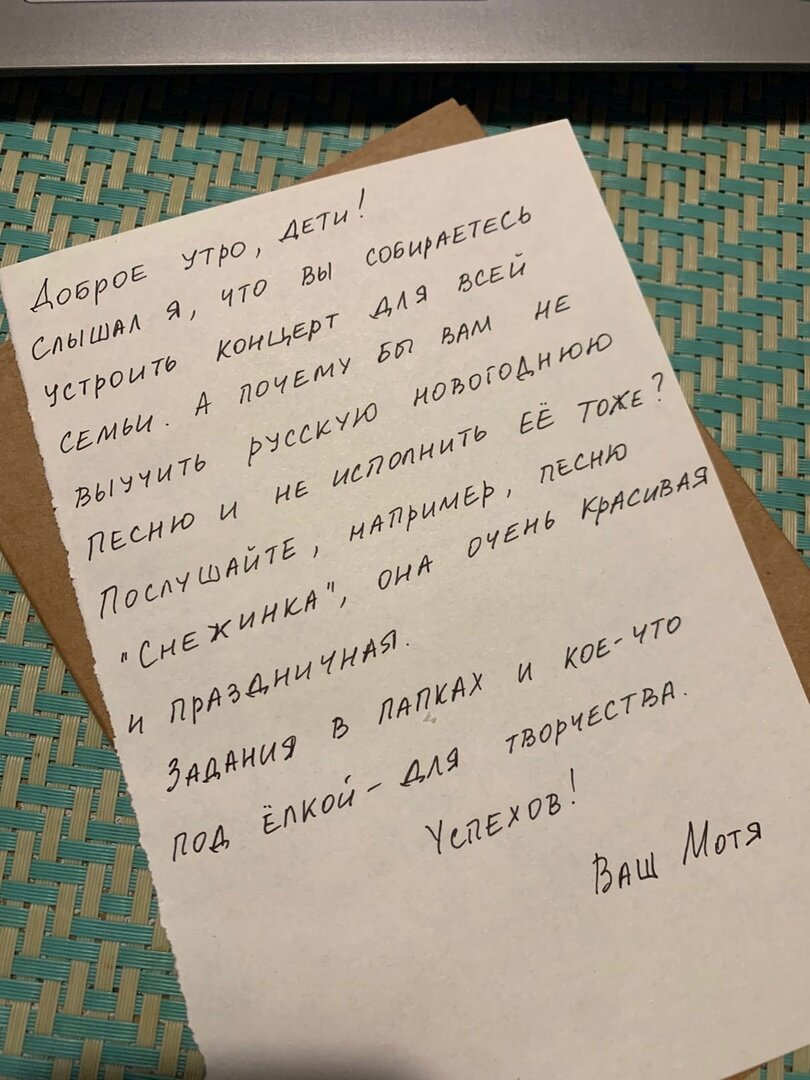 Доброе утро, дети!
Слышал я, что вы собираетесь
устроить концерт для всей
семьи. А почему бы вам не
выучить русскую новогоднюю
песню и не исполнить её тоже?
Послушайте, например, песню
"Снежинка", она очень красивая
и праздничная.
Задания в папках и кое-что
под ёлкой – для творчества.
Успехов!
Ваш Мотя